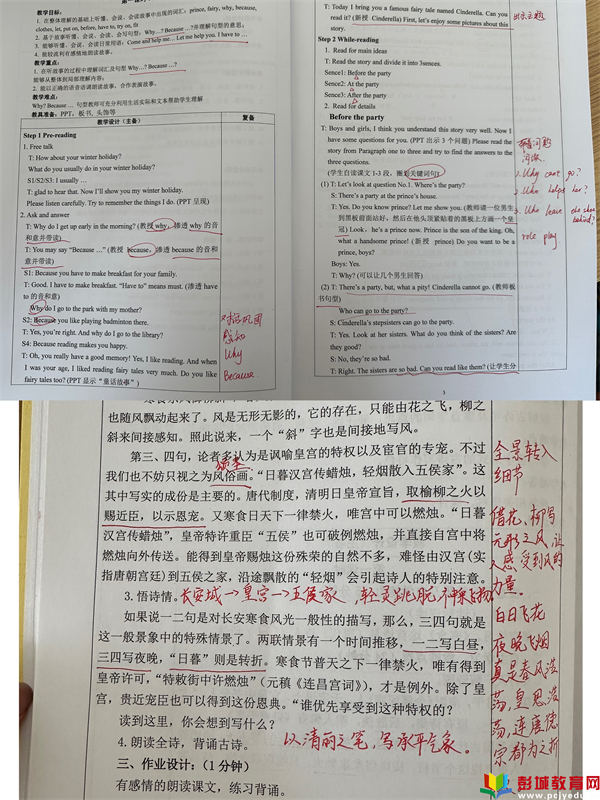 教学目标:
1. 在整体理解的基础上听懂、会读、会说故事中出现的词汇: prince, fairy, why, because,
clothes, let, put on, before, have to, try on, fit
2. 基于故事听懂、会读、会说、会写句型: Why…? Because …?并理解句型的意思;
3. 能够听懂、会读、会说日常用语: Come and help me… Let me help you. I have to …
4. 能较流利有感情地朗读故事。
教学重点:
1. 在听故事的过程中理解词汇及句型 Why…? Because …?
能够从整体到局部理解内容;
2. 能以正确的语音语调朗读故事,合作表演故事。
教学难点:
Why? Because … 句型教师可充分利用生活实际和文本帮助学生理解
教具准备: PPT,板书,头饰等
教学设计(主备)
复备
Step 1 Pre-reading
1. Free talk
T: How about your winter holiday?
What do you usually do in your winter holiday?
S1/S2/S3: I usually …
T: glad to hear that. Now I'll show you my winter holiday.
Please listen carefully. Try to remember the things I do. (PPT 呈现)
2. Ask and answer
T: Why do I get up early in the morning? (教授 why, 渗透 why 的音
和意并带读)
T: You may say "Because …" (教授 because, 渗透 because 的音
和意并带读)
S1: Because you have to make breakfast for your family.
T: Good. I have to make breakfast. "Have to" means must. (渗透 have
to 的音和意)
Why do I go to the park with my mother?
S2: Because you like playing badminton there.
T: Yes, you're right. And why do I go to the library?
S4: Because reading makes you happy.
T: Oh, you really have a good memory! Yes, I like reading. And when
I was your age, I liked reading fairy tales very much. Do you like
fairy tales too? (PPT 显示"童话故事")
感知
Why
Because
T: Today I bring you a famous fairy tale named Cinderella. Can you
read it? (新授 Cinderella) First, let's enjoy some pictures about this
story.
出示主题
Step 2 While-reading
1. Read for main ideas
T: Read the story and divide it into 3sences.
Sence1: Before the party
Sence2: At the party
Sence3: After the party
2. Read for details
Before the party
T: Boys and girls, I think you understand this story very well. Now I
have some questions for you. (PPT 出示 3 个问题) Please read the
story from Paragraph one to three and try to find the answers to the
three questions.
(学生自读课文 1-3 段,圈划关键词句)
(1) T: Let's look at question No.1. Where's the party?
S: There's a party at the prince's house.
T: Yes. Do you know prince? Let me show you. (教师请一位男生
到黑板前面站好,然后在他头顶紧贴着的黑板上方画一个皇
冠) Look, he's a prince now. Prince is the son of the king. Oh,
what a handsome prince! (新授 prince) Do you want to be a
prince, boys?
Boys: Yes.
T: Why? (可以让几个男生回答)
(2) T: There's a party, but, what a pity! Cinderella cannot go. (教师板
书句型)
Who can go to the party?
S: Cinderella's stepsisters can go to the party.
T: Yes. Look at her sisters. What do you think of the sisters? Are
they good?
S: No, they're so bad.
T: Right. The sisters are so bad. Can you read like them? (让学生分
Why can't go?
Who helps her?
Who leave the shoe
behind?
role play
也随风飘动起来了。风是无形无影的,它的存在,只能由花之飞,柳之
斜来间接感知。照此说来,一个"斜"字也是间接地写风。
第三、四句,论者多认为是讽喻皇宫的特权以及宦官的专宠。不过
我们也不妨只视之为风俗画。"日暮汉宫传蜡烛,轻烟散入五侯家"。这
其中写实的成份是主要的。唐代制度,清明日皇帝宣旨,取榆柳之火以
赐近臣,以示恩宠。又寒食日天下一律禁火,唯宫中可以燃烛。"日暮
汉宫传蜡烛",皇帝特许重臣"五侯"也可破例燃烛,并直接自宫中将
燃烛向外传送。能得到皇帝赐烛这份殊荣的自然不多,难怪由汉宫(实
指唐朝宫廷)到五侯之家,沿途飘散的"轻烟"会引起诗人的特别注意。
3. 悟诗情。长安城→皇宫→五侯家,轻灵跳脱
如果说一二句是对长安寒食风光一般性的描写,那么,三四句就是
这一般景象中的特殊情景了。两联情景有一个时间推移,一二写白昼,
三四写夜晚,"日暮"则是转折。寒食节普天之下一律禁火,唯有得到
皇帝许可,"特敕街中许燃烛"(元稹《连昌宫词》),才是例外。除了皇
宫,贵近宠臣也可以得到这份恩典。"谁优先享受到这种特权的?
读到这里,你会想到写什么?
4. 朗读全诗,背诵古诗。
以清丽之笔,写承平气象。
三、作业设计:(1 分钟)
有感情的朗读课文,练习背诵。
全景转入
细节
借花、柳写
无形之风,让
人感受到风的
力量。
白日飞花
夜晚飞烟
真是春风浩
荡,皇恩浩
荡,连唐德
宗都为之折
彭城教育网
www.pcjyedu.com